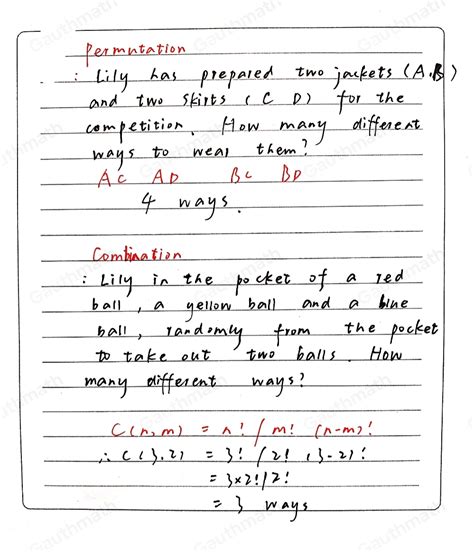 Permutation
: Lily has prepared two jackets (A.B)
and two skirts ( C D ) for the
competition. How many different
ways to wear them?
AC AD BC BD
4 ways.
Combination
: Lily in the pocket of a red
ball, a yellow ball and a blue
ball, randomly from the pocket
to take out two balls. How
many different ways?
C(n,m) = n! / m! (n-m)!
∴ C(3,2) = 3! / 2! (3-2)!
= 3×2! / 2!
= 3 ways
Gauthmath